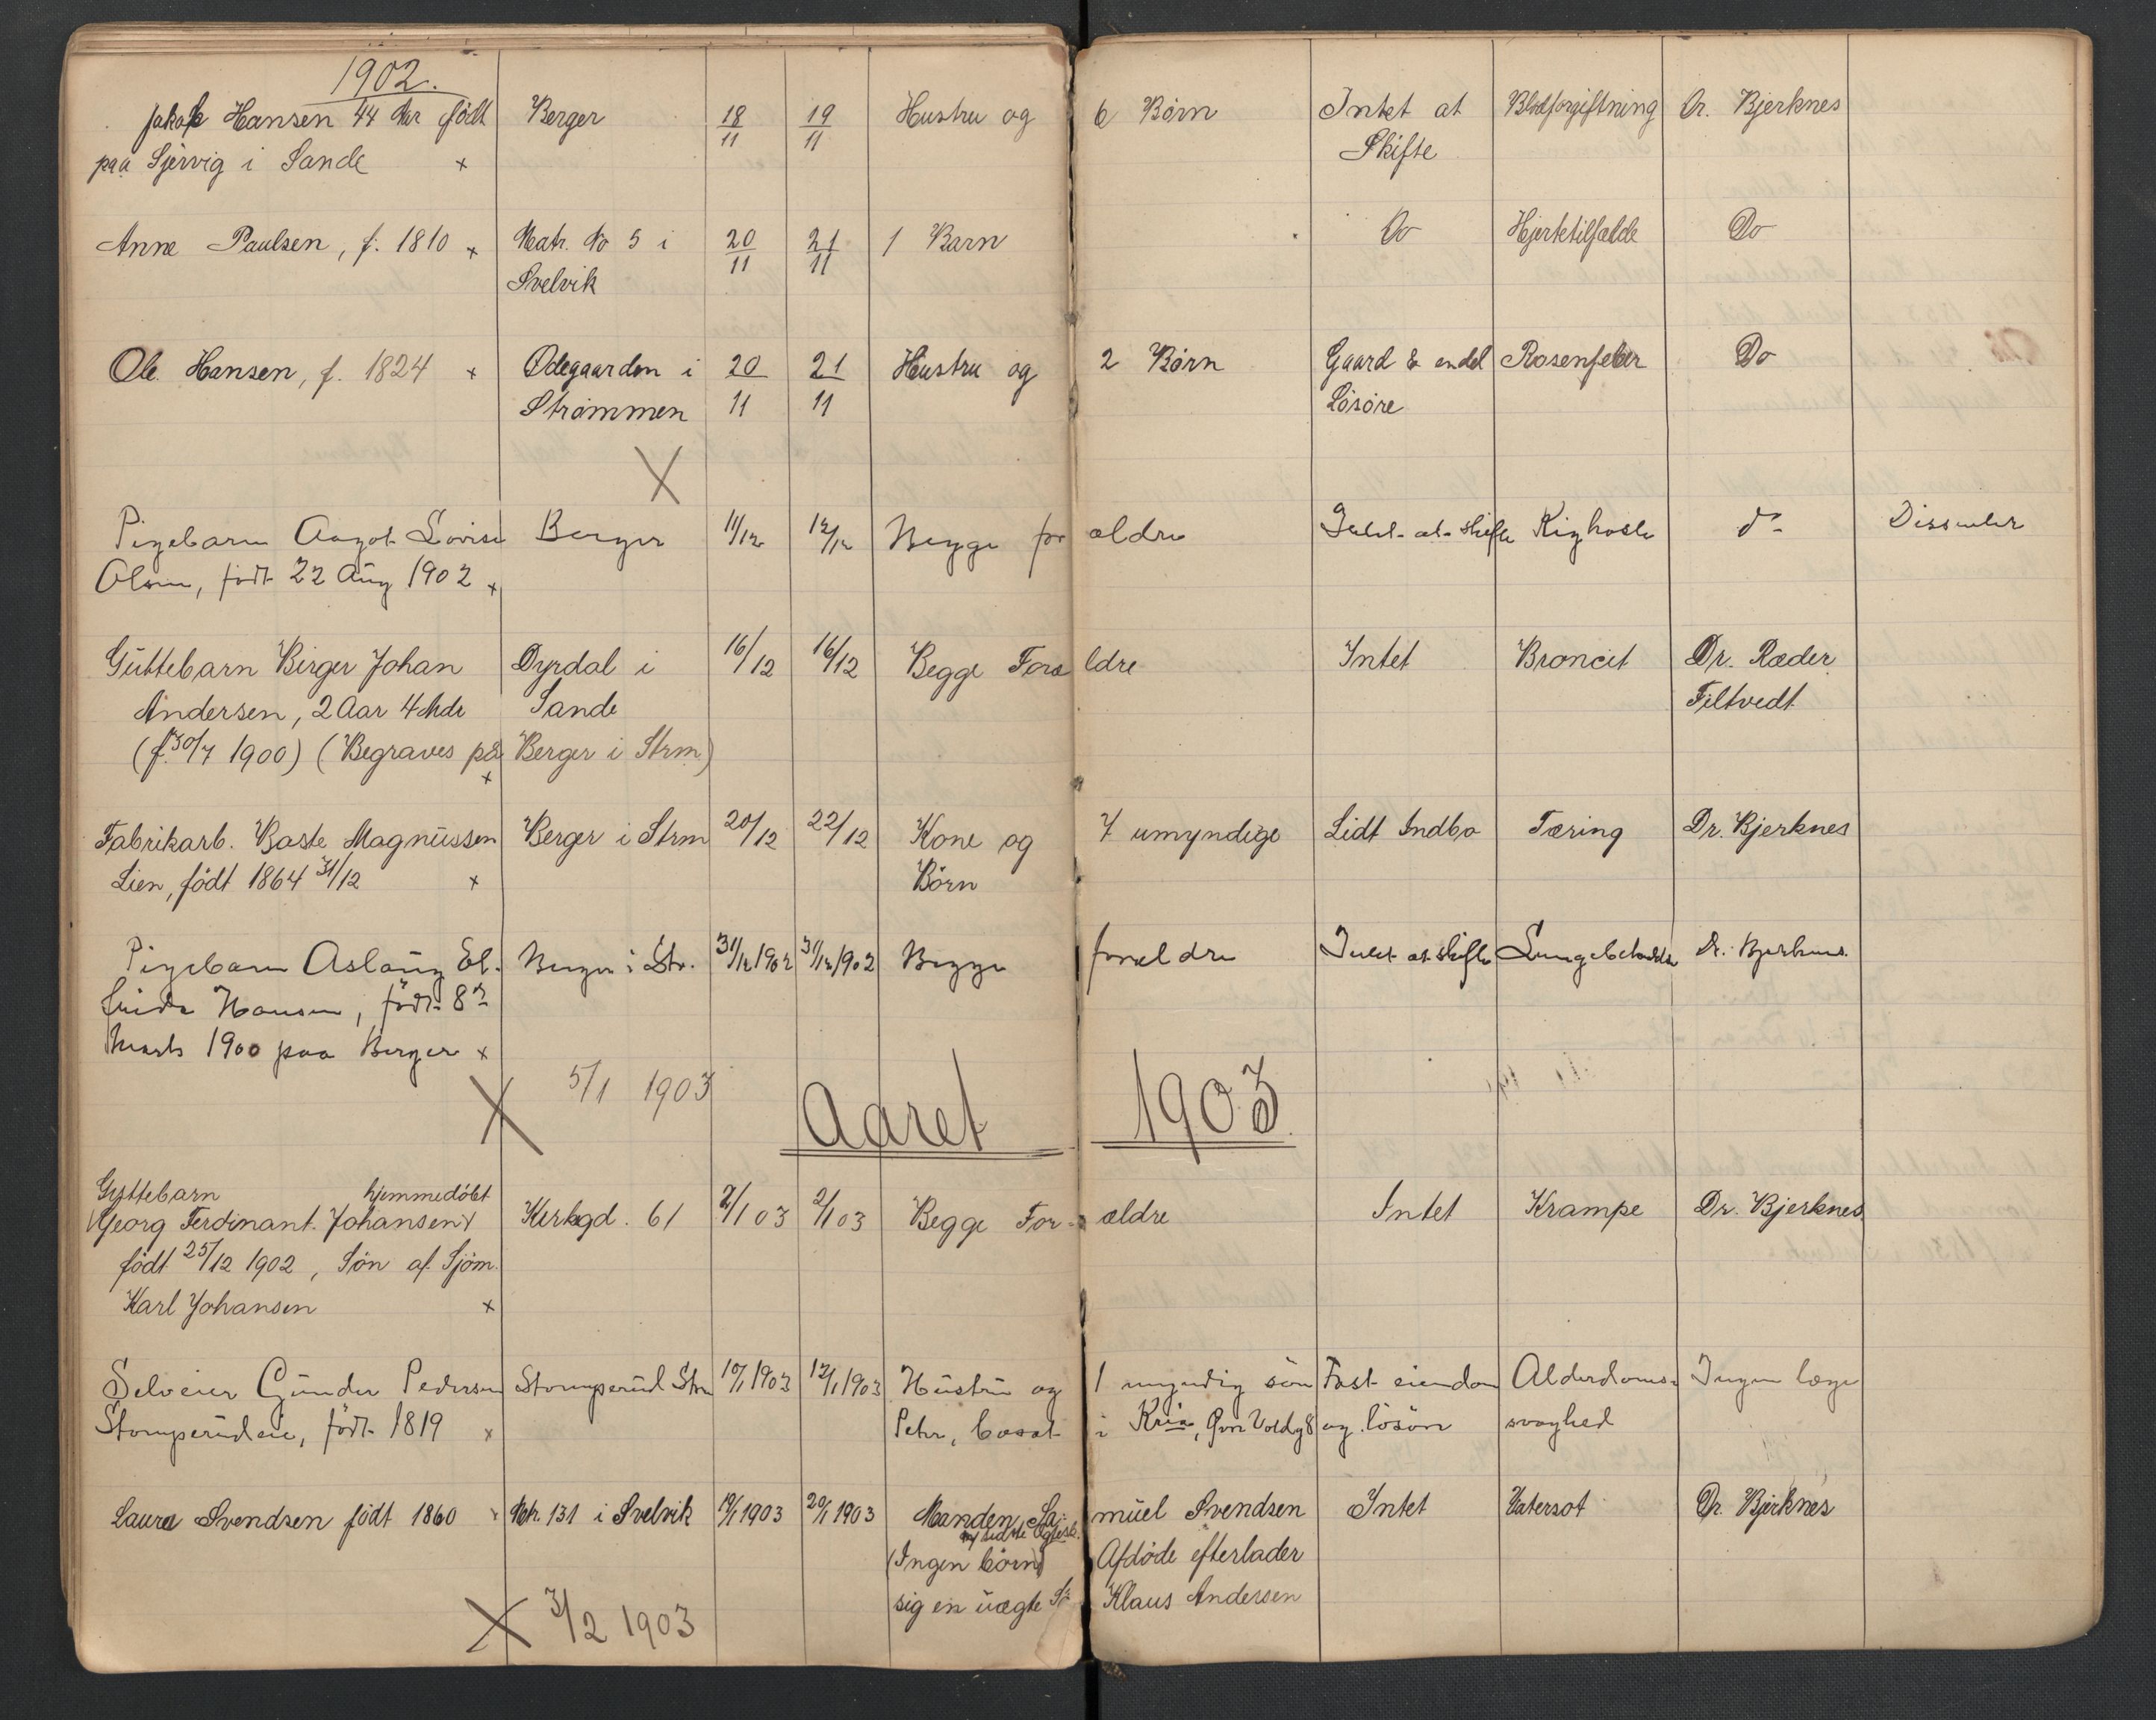 1902.
Jakob Hansen 44 Aar født Berger 18/11 19/11 Hustru og 6 Børn Intet at Blodforgiftning Dr. Bjerknes
paa Sjervig i Sande x Skifte
Anne Paulsen, f. 1810 x Matr. No 5 i 20/11 21/11 1 Barn Do Hjertetilfælde Do
Svelvik
Ole Hansen, f. 1824 x Ødegaarden i 20/11 21/11 Hustru og 2 Børn Gaard & endel Rosenfeber Do
Strømmen Løsøre
X
Pigebarn Aagot Lovise Berger 11/12 12/12 Begge for ældre Intet at skifte Kighoste do Dissenter
Olsen, født 22 Aug 1902 x
Guttebarn Birger Johan Dyrdal i 16/12 16/12 Begge Foræ ldre Intet Broncit Dr. Ræder
Andersen, 2 Aar 4 Mdr Sande Filtvedt
(f. 30/7 1900) (Begraves på Berger i Strm)
x
Fabrikarb. Baste Magnussen Berger i Strm 20/12 22/12 Kone og 7 umyndige Lidt Indbo Tæring Dr. Bjerknes
Lien, født 1864 31/12 x Børn
Pigebarn Aslaug El- Berger i Str. 31/12 1902 31/12 1902 Begge forældre Intet at skifte Dr. Bjerknes.
frida Hansen, født 8de
Marts 1900 paa Berger x
X 5/1 1903
Aaret 1903.
Gyttebarn hjemmedøbt
Georg Ferdinant Johansen Kirkegd. 61 2/1 03 2/1 03 Begge For- ældre Intet Krampe Dr. Bjerknes
født 25/12 1902, Søn af Sjöm.
Karl Johansen x
Selveier Gunder Pedersen Stomperud Str 10/1 1903 12/1 1903 Hustru og 1 myndig søn Fast eiendom Alderdoms- Ingen læge
Stomperudeie, født 1819 x Peter, bosat i Kria, Øvre Voldg 8 og løsøre svaghed
Laura Svendsen født 1860 x Mtr. 131 i Svelvik 19/1 1903 20/1 1903 Manden Sa- muel Svendsen Intet Vatersot Dr. Bjerknes
sidste Ægtesk.
(Ingen børn) Afdøde efterlader
sig en uægte Klaus Andersen
X 3/2 1903